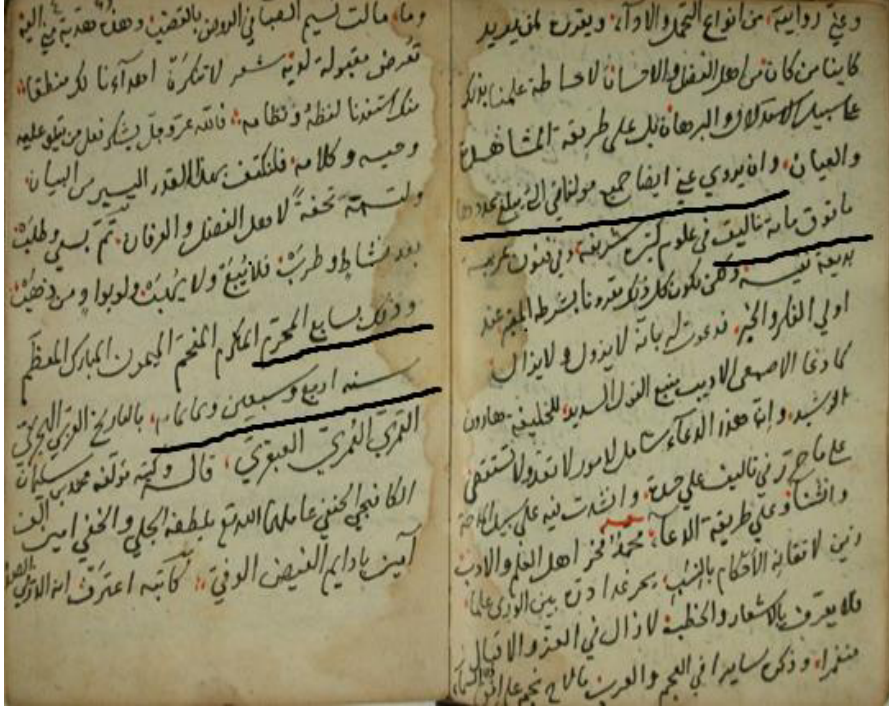 وعني روايته من انواع التحمل والاداء ويقرن لمن يريد
كاينا من كان من اهل الفضل والاحسان لاحاطة علمنا بذلك
على سبيل الاستدلال والبرهان بل على طريقة المشاهدة
والعيان وان يروي عني ايضا جميع مولفاتي التي يبلغ عددها
ما فوق ماية تاليف في علوم كثيرة شريفة وفي فنون غريبة
بديعة نفيسة ولكن يكون كل ذلك مقرونا بشرطه المعتبر عند
اولي الفكر والخبر فدعوت له بانه لا يزول ولا يزال
كما دعا الاصمعي الاديب منبع القول السديد للخليفة هارون
الرشيد وان هذا الدعاء شامل لامور لا تعد ولا تستقصى
على ما حررنا في تاليف على حدة وانشدت فيه على سبيل
وانشا وعلى طريقة الدعاء محمد فخر اهل العلم والادب
بين الورى علما
فلا يعرف بالاشعار والخطب لا زال في العز والاقبال
وذكره سايرا في العجم والعرب ما لاح نجم على افق السماء
وما مالت نسيم الصبا في الروض بالقضب وهذه هدية مني اليه
تعرض مقبولة لديه شعر لا تنكرن اهداءنا لك منطقا
منك استفدنا لفظه ونظامه فالله عز وجل يشكر فعل من يتلو عليه
وحيه وكلامه فلنكتف بهذا القدر اليسير من البيان
تحفة لاهل الفضل والعرفان تمت بسعي وطلبت
بعد نشاط وطربت فلا يبغ ولا ولو بوا ومن ذهبت
وذلك بسابع المحرم المكرم المفخم الميمون المبارك المعظم
سنة اربع وسبعين وثمانماية بالتاريخ العربي الهجري
القمري قاله وكتبه مولفه محمد بن سليمان
الكافيجي الحنفي عاملهما الله تع بلطفه الجلي والخفي امين
آمين يا دايم الفيض الوفي كاتبه اعترف انه